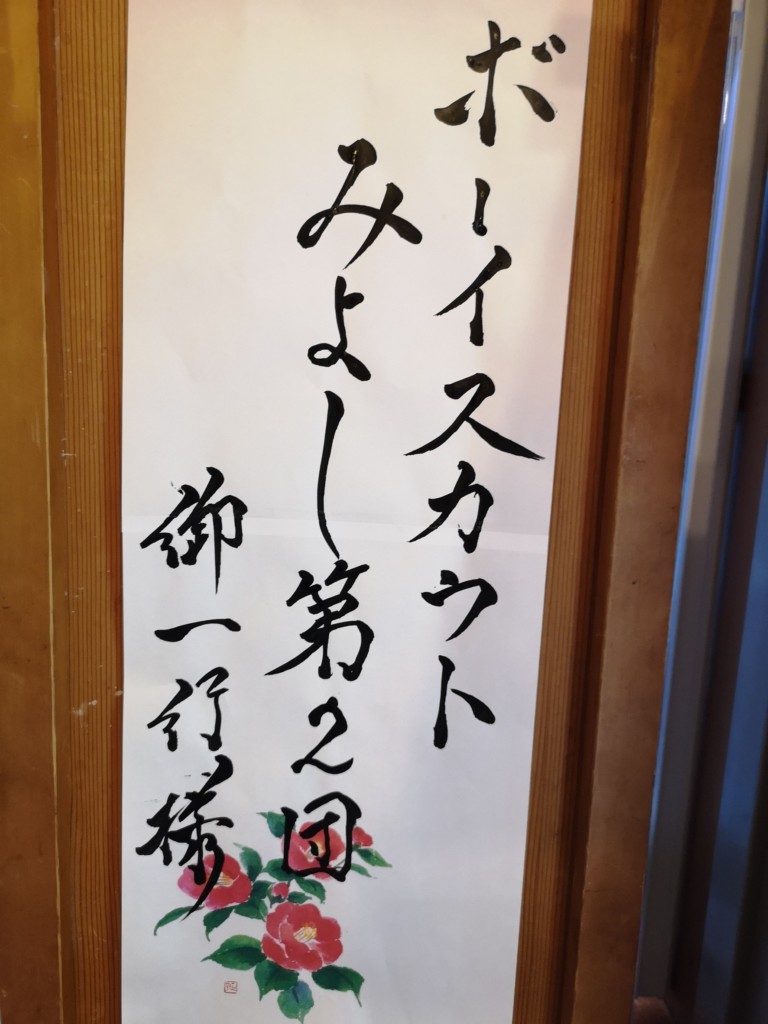 ボーイスカウト
みよし第2団
御一行様